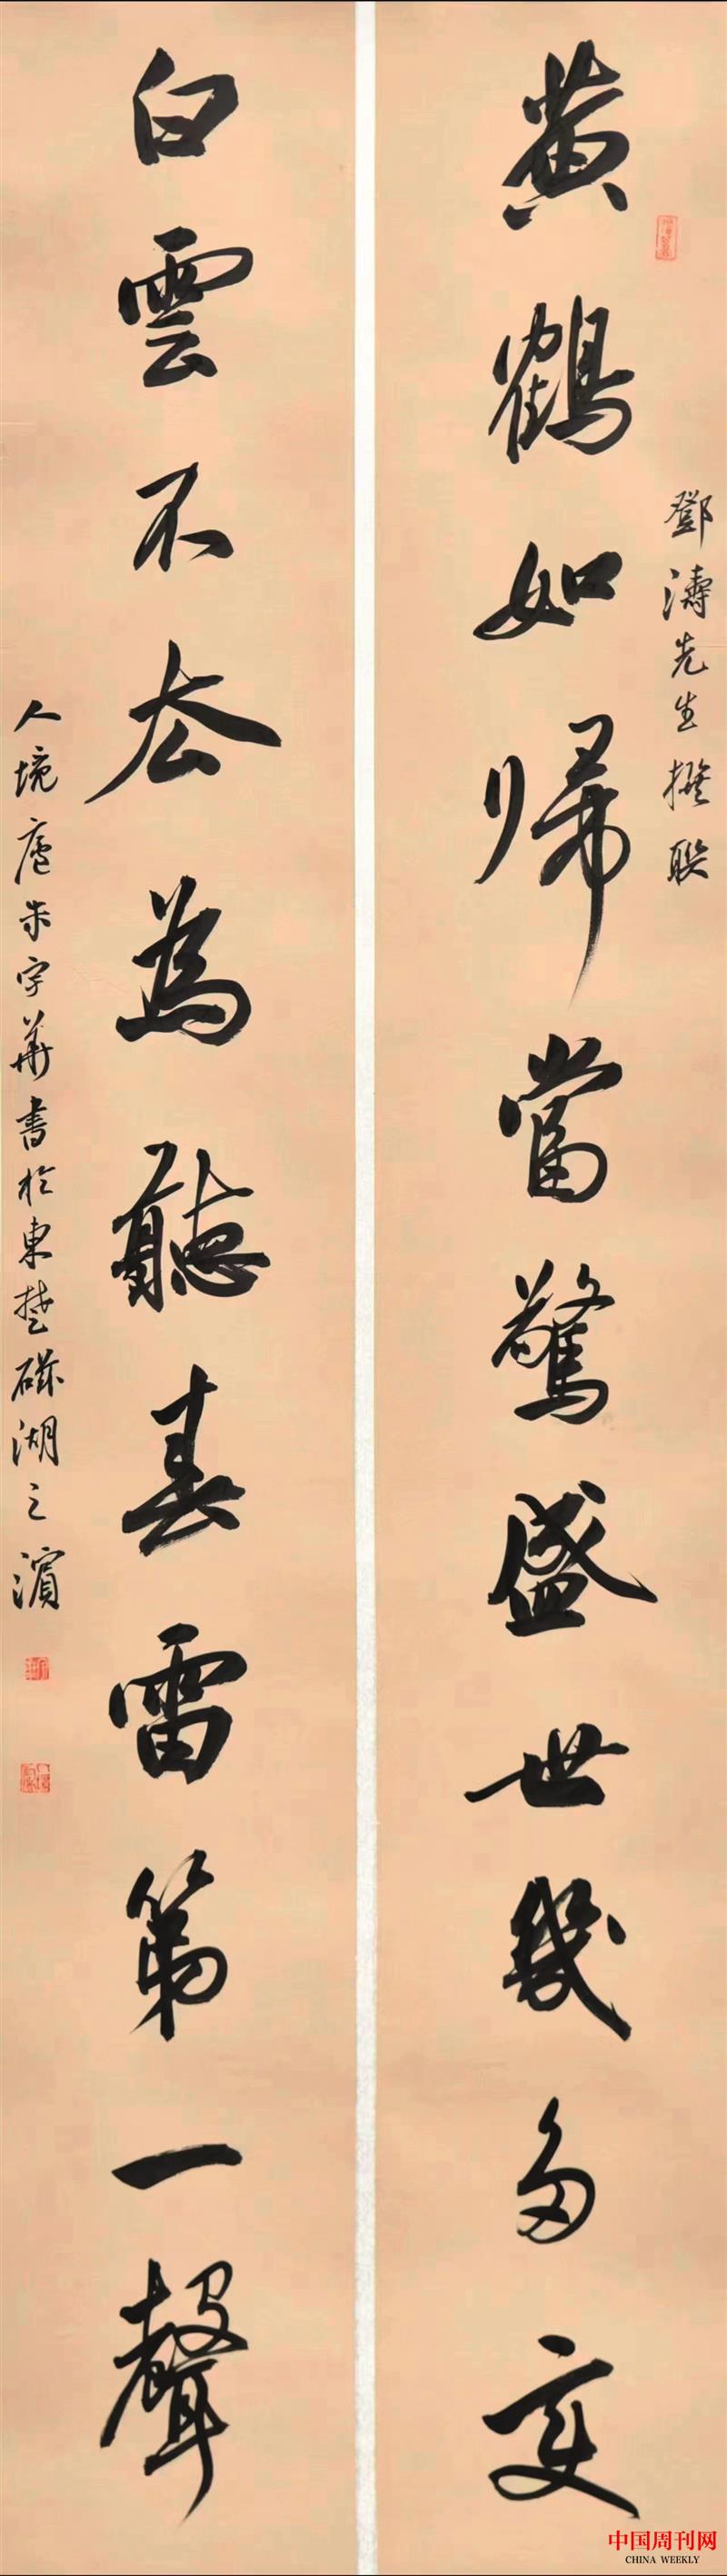 鄧濤先生撰联
黄鶴如帰當驚盛世幾多变
白雲不去為聽春雷第一聲
人境廬朱字華書於東楚磁湖之濱
中国周刊网
CHINA WEEKLY